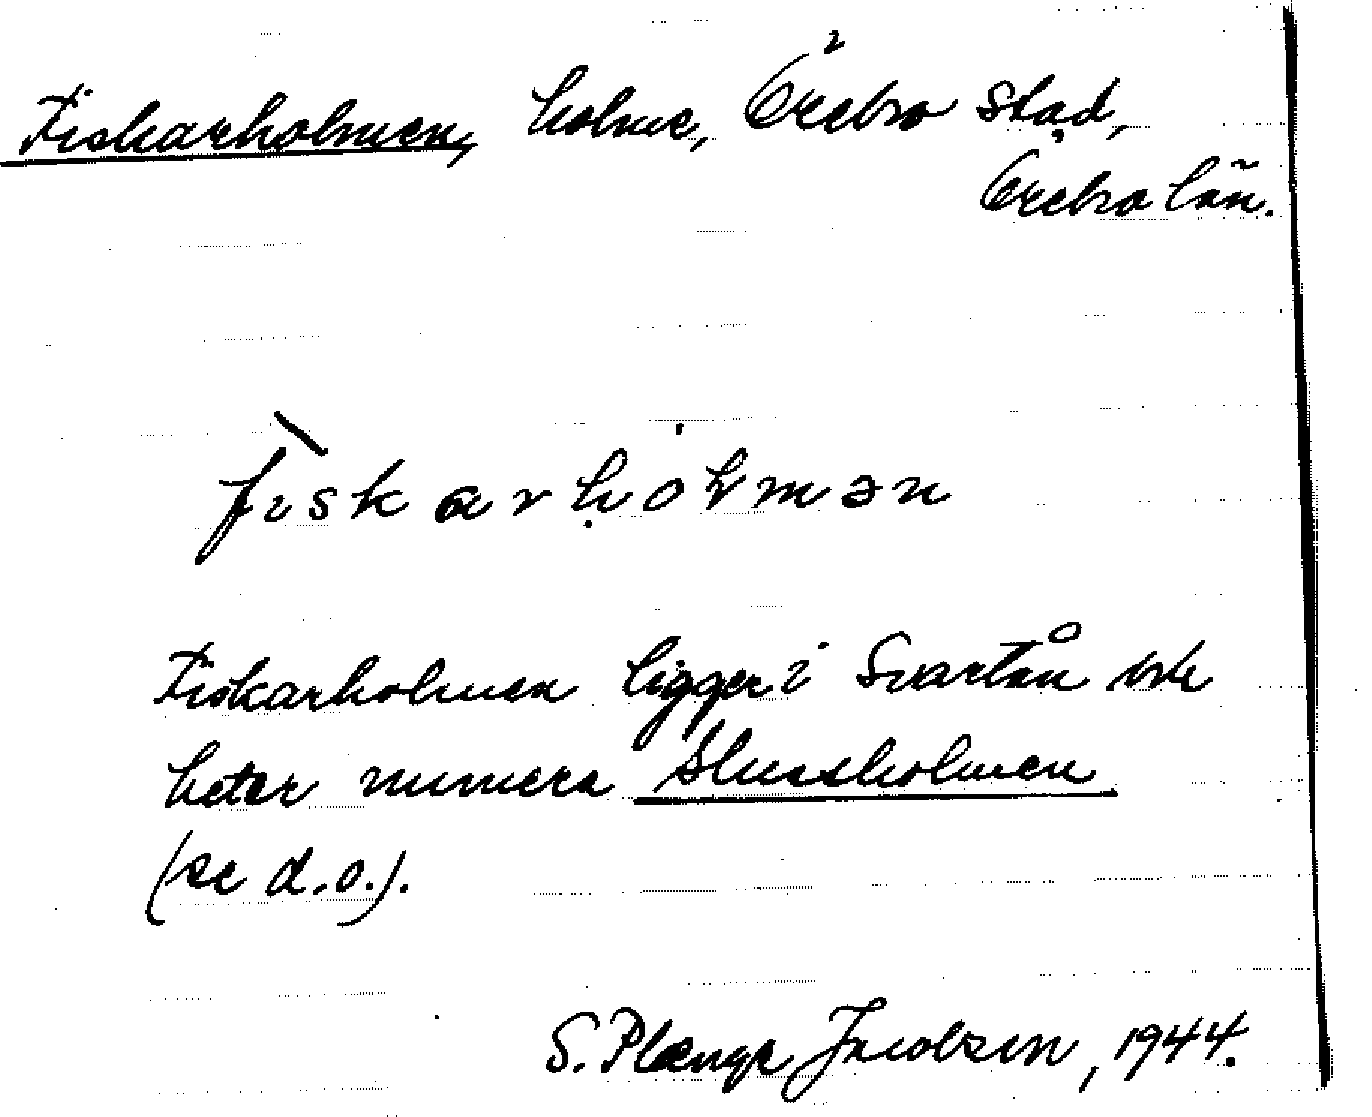 Fiskarholmen, holme, Örebro stad,
Örebro län.
fìskarhȯlmən
Fiskarholmen ligger i Svartån och
heter numera Slussholmen
(se d.o.).
S. Plænge Jacobson, 1944.